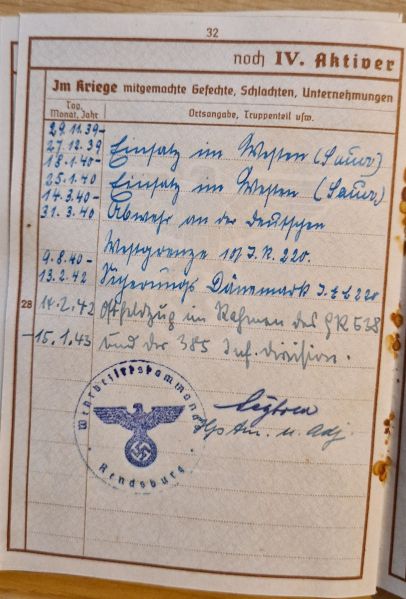 32
noch IV. Aktiver
Im Kriege mitgemachte Gefechte, Schlachten, Unternehmungen
Tag, Monat, Jahr
Ortsangabe, Truppenteil usw.
29.11.39-
27.12.39 Einsatz im Westen (Saur)
18.1.40-
25.1.40 Einsatz im Westen (Saur)
14.3.40-
31.3.40 Abwehr an der deutschen
Westgrenze 10/ I.R. 220.
9.8.40-
13.2.42 Sicherungs Dänemark I.E.B 220
28
14.2.42 Ostfeldzug im Rahmen des GR 538
-15.1.43 und der 385 Inf. division.
Hptm. u. Adj.
Wehrbezirkskommando
Rendsburg